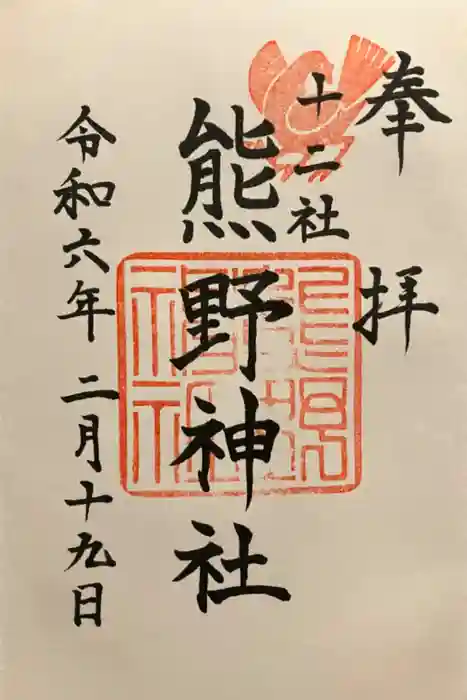 奉拝
十二社
熊野神社
令和六年二月十九日